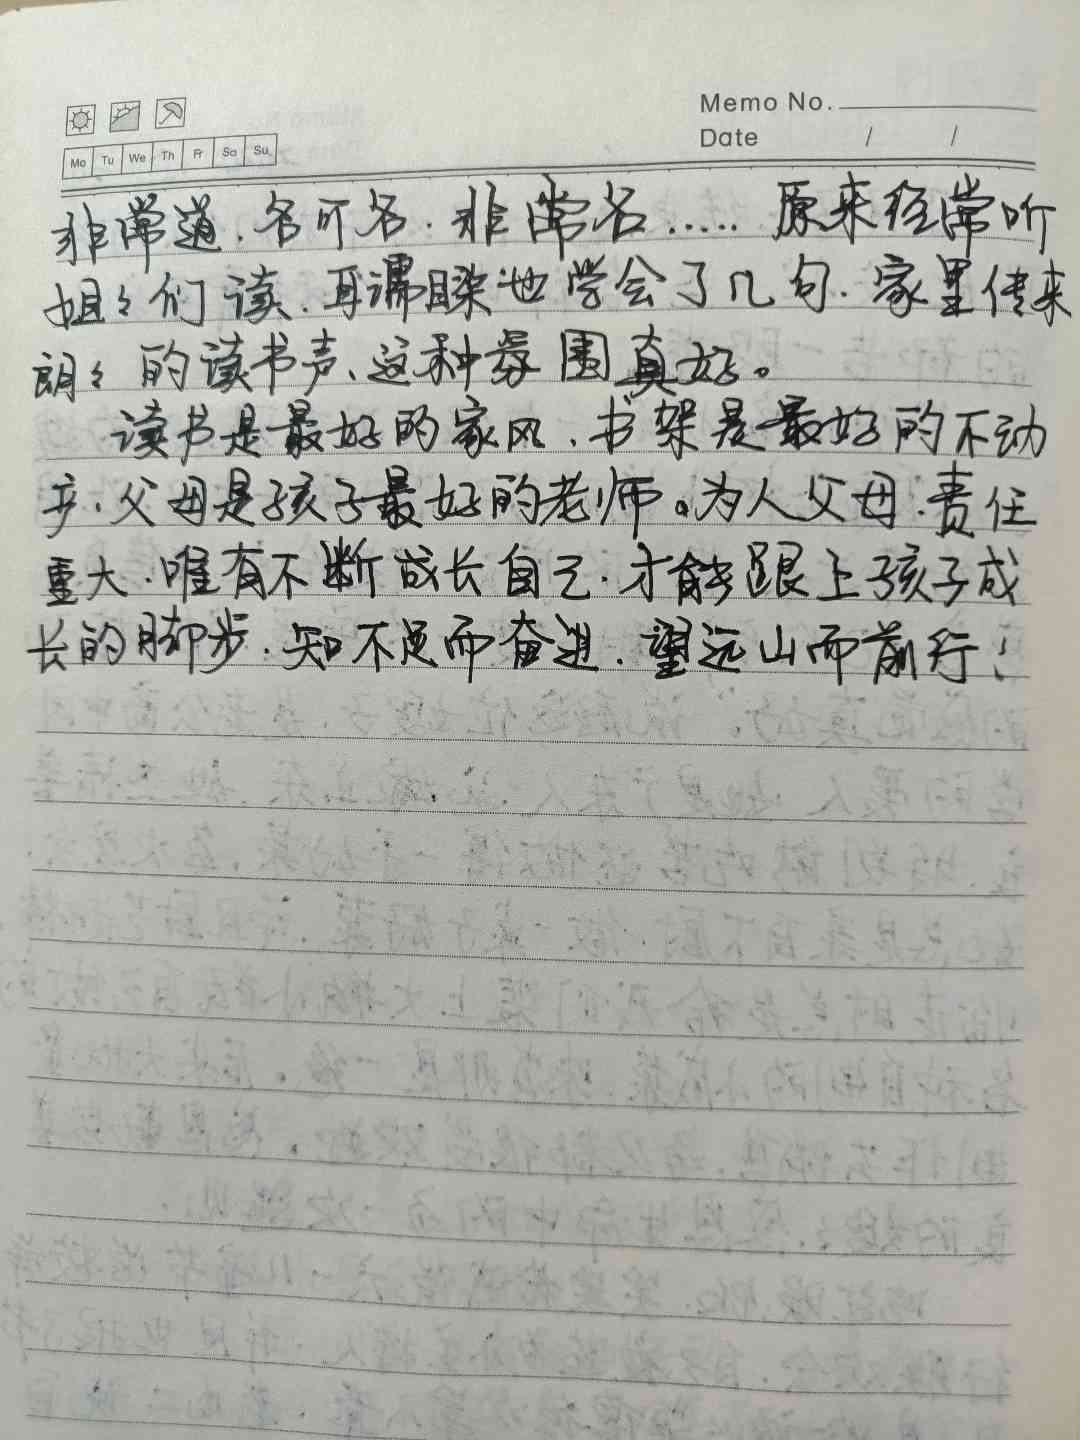 Memo No.
Date / /
Mo Tu We Th Fr Sa Su
非常道，名可名，非常名……原来经常听
姐々们读，耳濡目染也学会了几句，家里传来
朗々的读书声、这种氛围真好。
读书是最好的家风，书架是最好的不动
产，父母是孩子最好的老师。为人父母，责任
重大，唯有不断成长自己，才能跟上孩子成
长的脚步，知不足而奋进，望远山而前行！